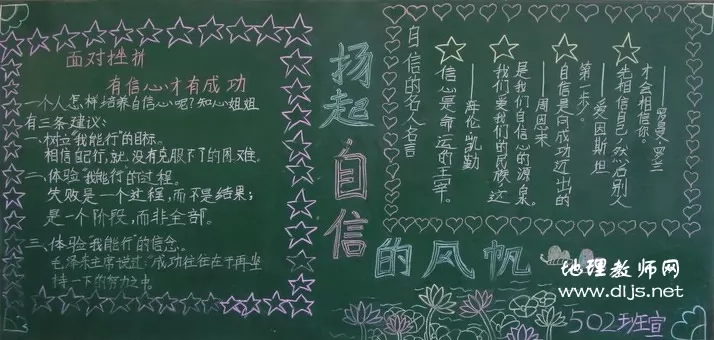 面对挫折
有信心才有成功
一个人怎样培养自信心呢?知心姐姐
有三条建议:
一、树立"我能行"的目标。
相信自己行,就没有克服不了的困难。
二、体验"我能行"的过程。
失败是一个过程,而不是结果;
是一个阶段,而非全部。
三、体验"我能行"的信念。
毛泽东主席说过:"成功往往在于再坚
持一下的努力之中
扬起自信
的风帆
自信的名人名言
信心是命运的主宰。
——海伦·凯勤
我们爱我们的民族,这
是我们自信心的源泉。
——周恩来
自信是向成功迈出的
第一步。
——爱因斯坦
先相信自己,然后别人
才会相信你。
——罗曼·罗兰
地理教师网
www.dljs.net
502班宣